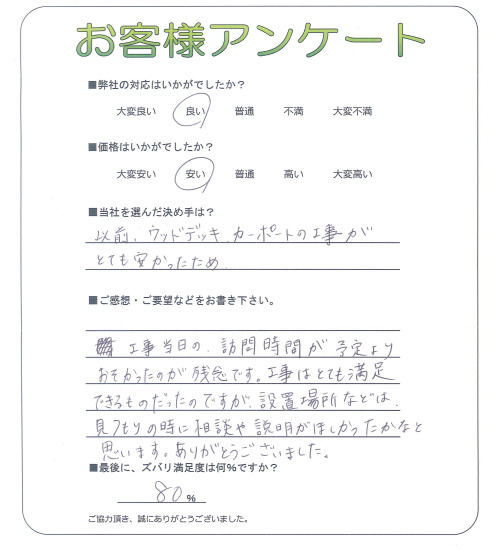 お客様アンケート
■弊社の対応はいかがでしたか？
大変良い 良い 普通 不満 大変不満
■価格はいかがでしたか？
大変安い 安い 普通 高い 大変高い
■当社を選んだ決め手は？
以前、ウッドデッキ、カーポートの工事が
とても安かったため、
■ご感想・ご要望などをお書き下さい。
工事当日の、訪問時間が予定より
おそかったのが残念です。工事はとても満足
できるものだったのですが、設置場所などは、
見つもりの時に相談や説明がほしかったかなと
思います。ありがとうございました。
■最後に、ズバリ満足度は何％ですか？
80 %
ご協力頂き、誠にありがとうございました。